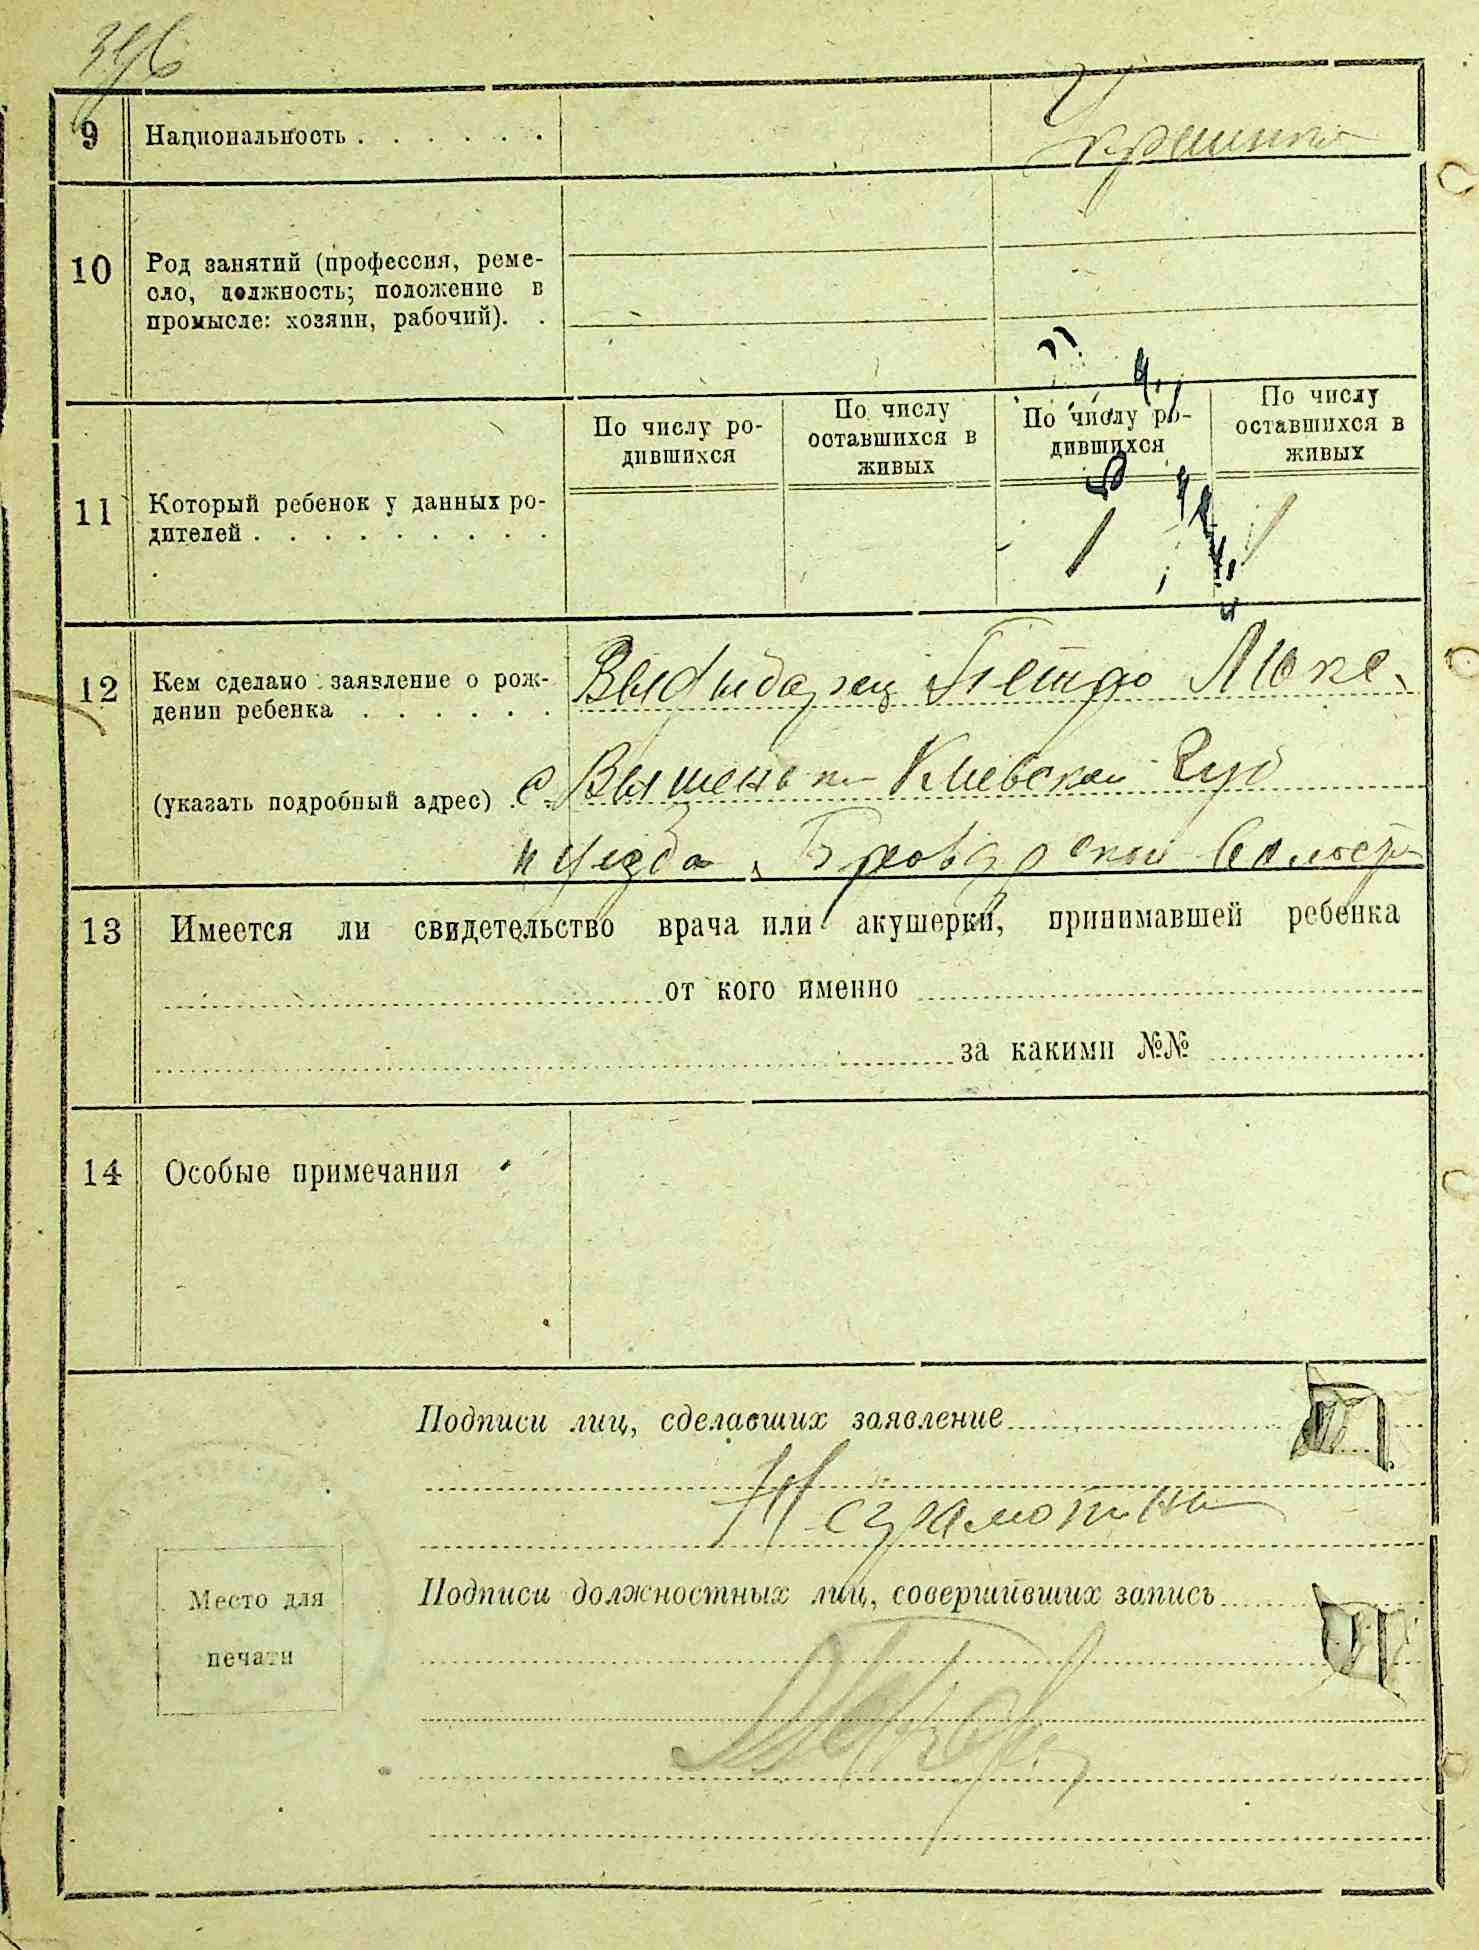 396
9 Национальность . . . . . .
10 Род занятий (профессия, реме-
сло, должность; положение в
промысле: хозяин, рабочий). .
11 Который ребенок у данных ро-
дителей . . . . . . . . .
По числу ро-
дившихся
По числу
оставшихся в
живых
По числу ро-
дившихся
По числу
оставшихся в
живых
1 1
12 Кем сделано заявление о рож-
дении ребенка . . . . . .
Петро
(указать подробный адрес) с. Вышеньки Киевской Губ
и уезда, Броварской Волости
13 Имеется ли свидетельство врача или акушерки, принимавшей ребенка
от кого именно
за какими №№
14 Особые примечания
Подписи лиц, сделавших заявление
Неграмотна
Подписи должностных лиц, совершивших запись
Место для
печати